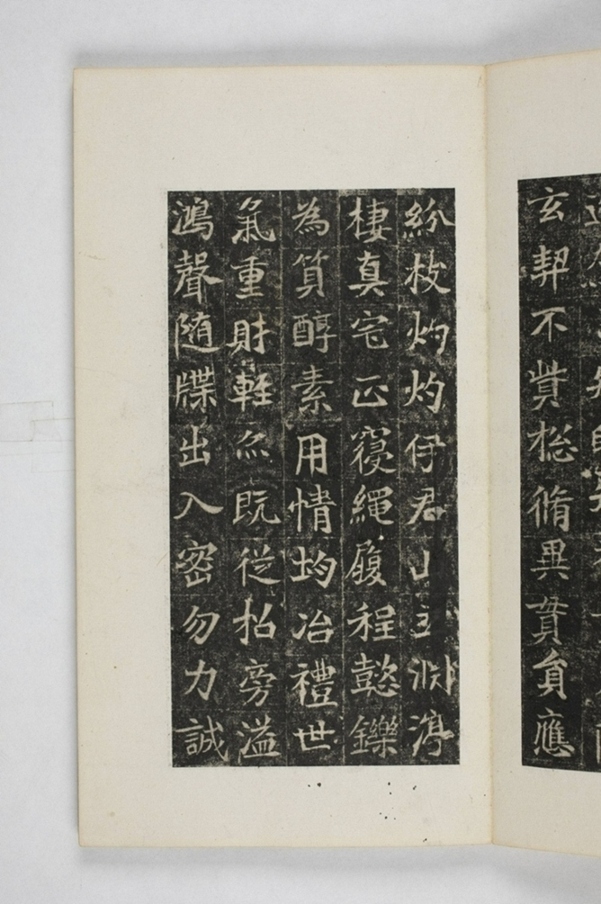 玄契不揔脩異賁負應
紛枝灼灼伊君山玉渟
棲真宅正寝繩履程懿鑠
為質醇素用情均冶禮世
氣重財軽尒既從招旁溢
鴻聲随牒出入密勿力誠